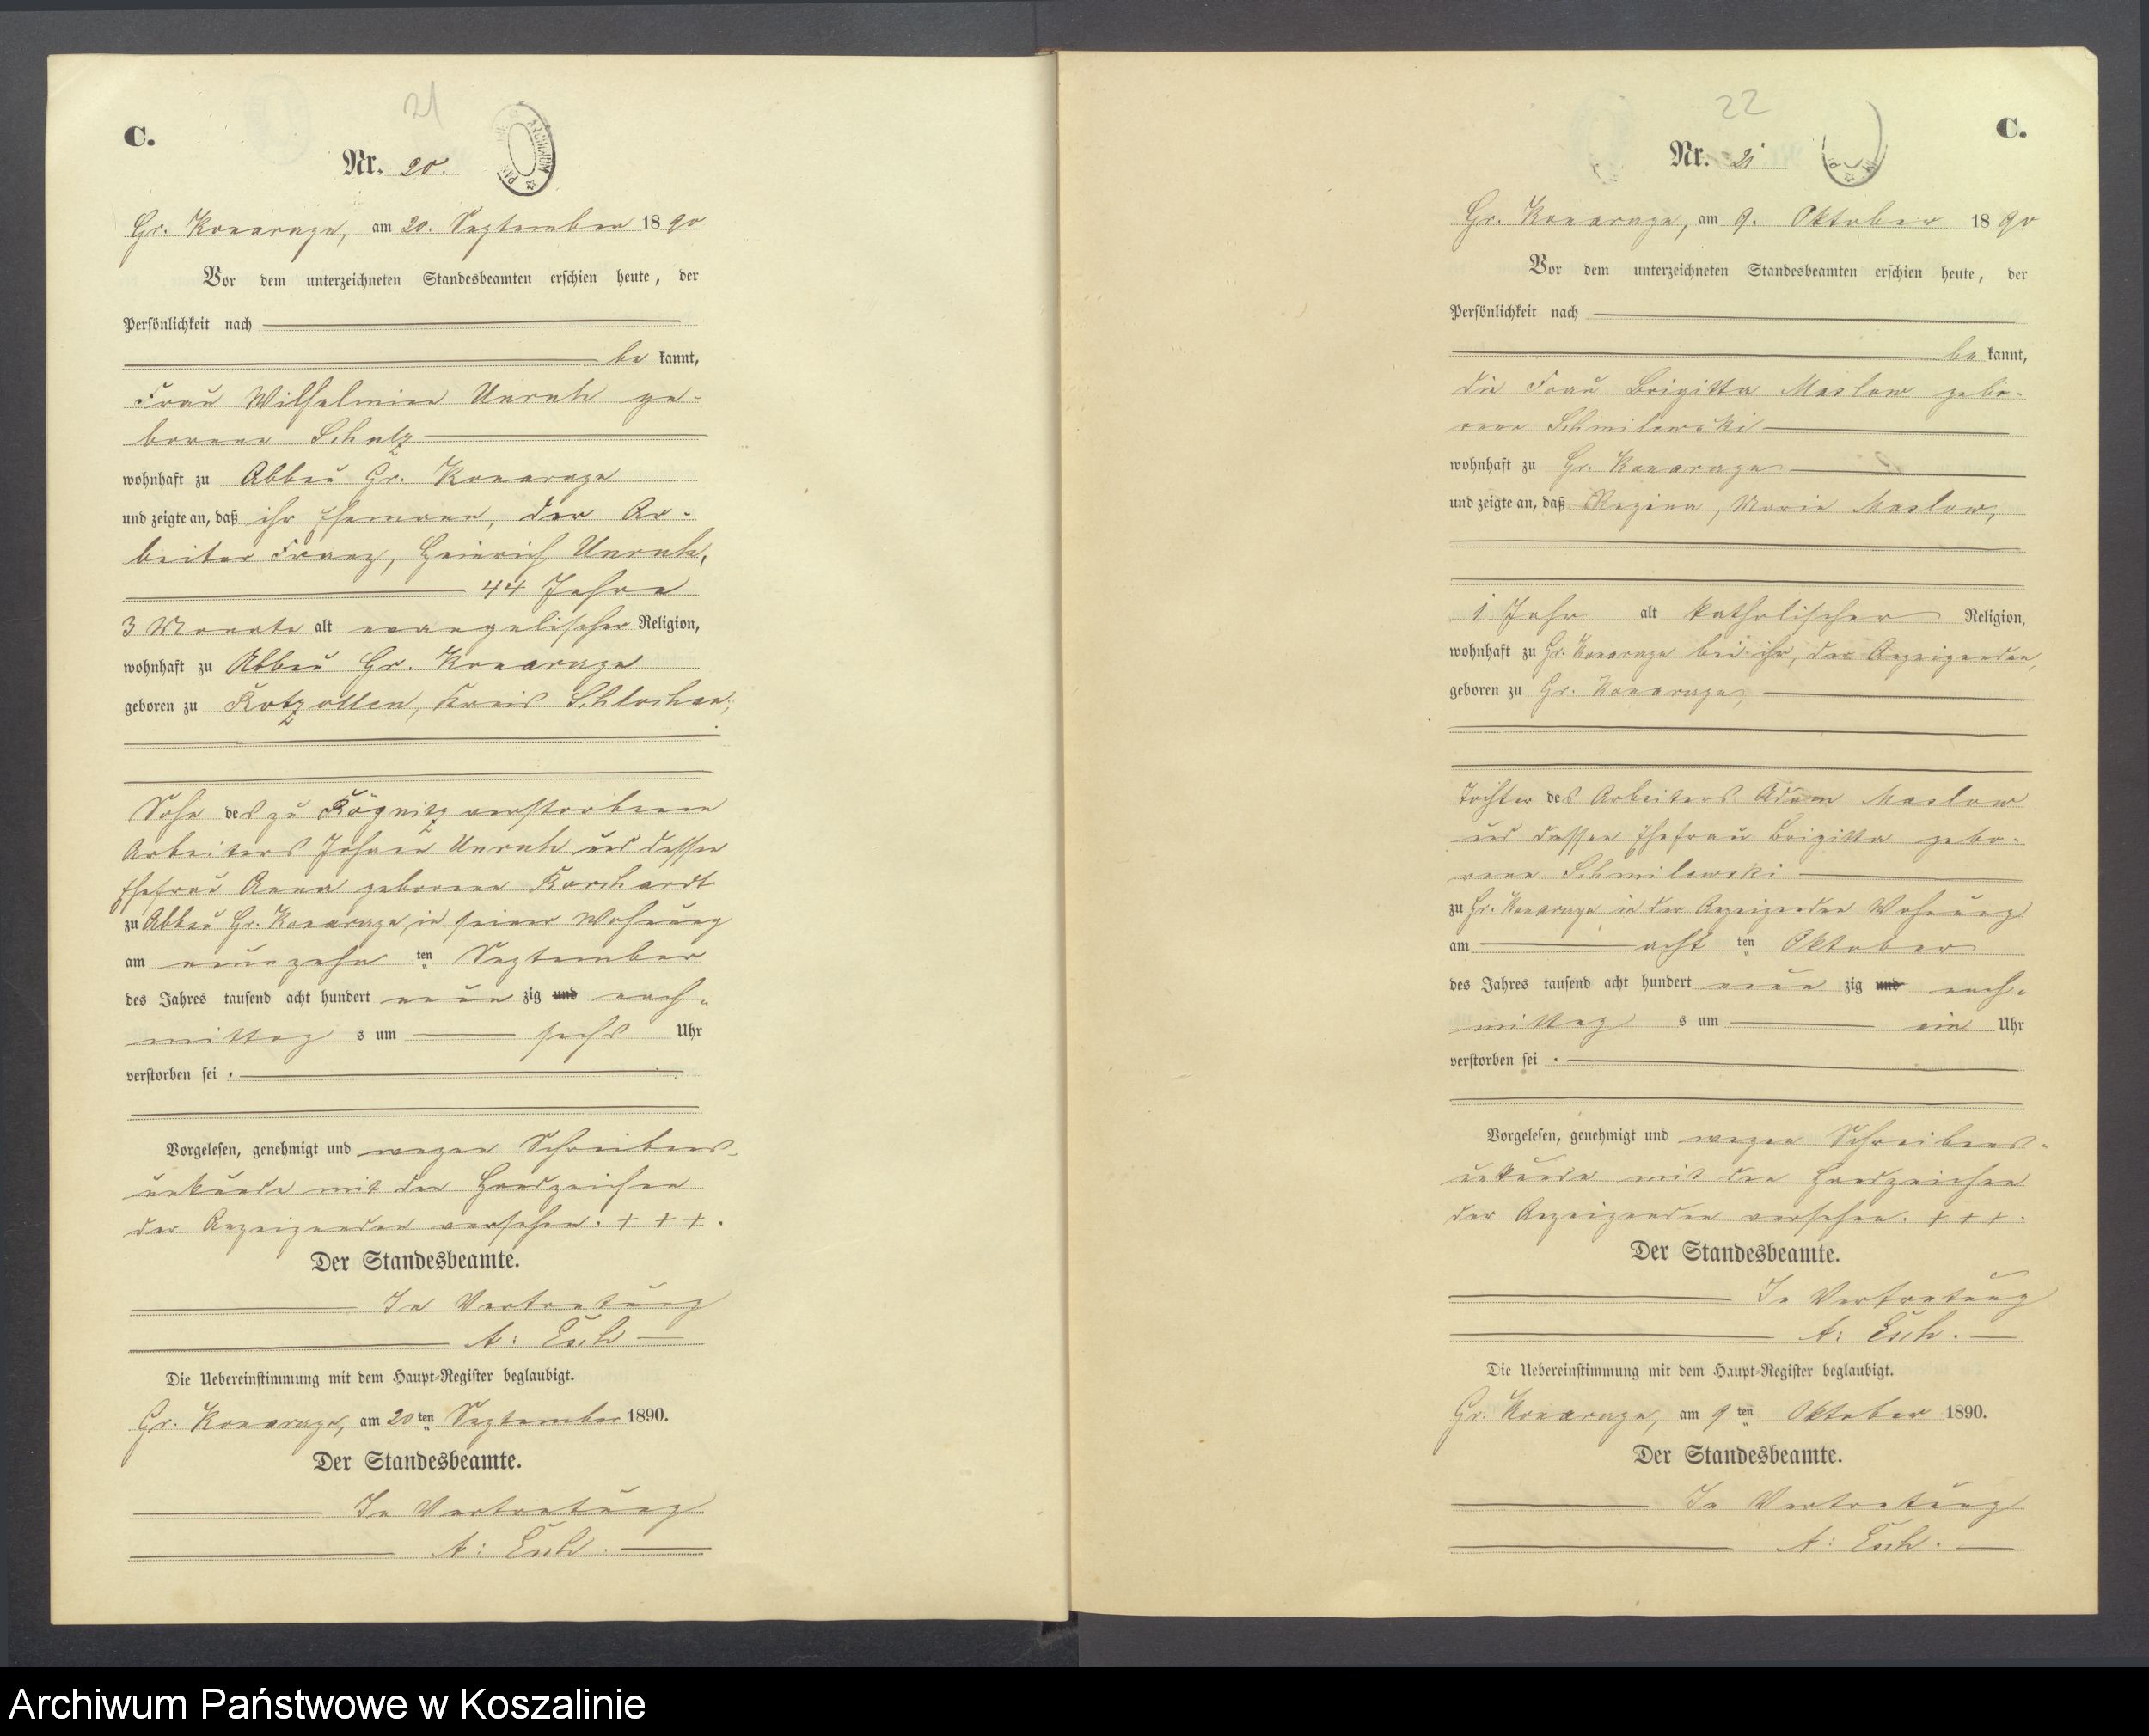 21
C.
Nr. 20.
Gr. Konarczyn, am 20. September 1890
Vor dem unterzeichneten Standesbeamten erschien heute, der
Persönlichkeit nach
be kannt,
Frau Wilhelmine Unruh ge-
borene Schulz
wohnhaft zu Abbau Gr. Konarczyn
und zeigte an, daß ihr Ehemann, der Ar-
beiter Franz, Heinrich Unruh,
44 Jahre
3 Monate alt evangelischer Religion,
wohnhaft zu Abbau Gr. Konarczyn
geboren zu Kreis Schlochau,
Sohn des zu verstorbenen
Arbeiters Johann Unruh und dessen
Ehefrau Anna geborene
zu Abbau Gr. Konarczyn, in seiner Wohnung
am neunzehn ten September
des Jahres tausend acht hundert neun zig und nach-
mittag s um sechs Uhr
verstorben sei.
Vorgelesen, genehmigt und wegen Schreibens-
unkunde mit den Handzeichen
der Anzeigenden versehen. + + +.
Der Standesbeamte.
In Vertretung
A: Esch
Die Uebereinstimmung mit dem Haupt-Register beglaubigt.
Gr. Konarczyn, am 20ten September 1890.
Der Standesbeamte.
In Vertretung
A: Esch.
22
C.
Nr. 21
Gr. Konarczyn, am 9. Oktober 1890
Vor dem unterzeichneten Standesbeamten erschien heute, der
Persönlichkeit nach
be kannt,
die Frau Brigitta Maslow gebo-
rene Schmilewski
wohnhaft zu Gr. Konarczyn
und zeigte an, daß Regina, Marie Maslow,
1 Jahr alt katholischer Religion,
wohnhaft zu Gr. Konarczyn bei ihr, der Anzeigenden,
geboren zu Gr. Konarczyn,
Tochter des Arbeiters Adam Maslow
und dessen Ehefrau Brigitta gebo-
rene Schmilewski
zu Gr. Konarczyn in der Anzeigenden Wohnung
am acht ten Oktober
des Jahres tausend acht hundert neun zig und nach-
mittag s um ein Uhr
verstorben sei.
Vorgelesen, genehmigt und wegen Schreibens-
unkunde mit den Handzeichen
der Anzeigenden versehen. + + +.
Der Standesbeamte.
In Vertretung
A: Esch.
Die Uebereinstimmung mit dem Haupt-Register beglaubigt.
Gr. Konarczyn, am 9ten Oktober 1890.
Der Standesbeamte.
In Vertretung
A: Esch.
Archiwum Państwowe w Koszalinie